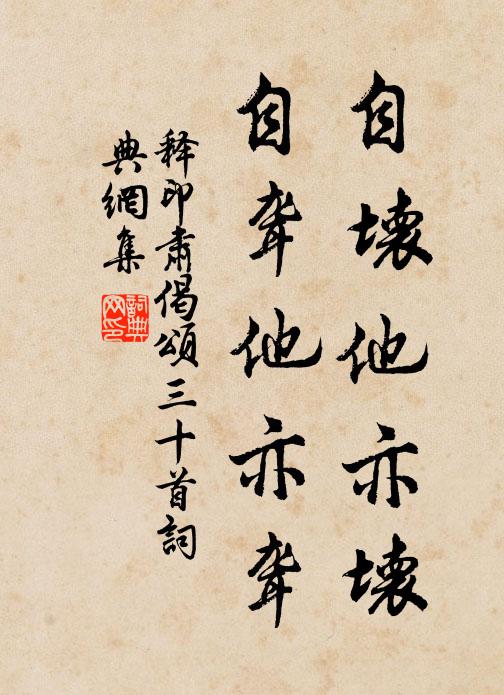 自壞他亦壞
自聋他亦聋
释印肅偈頌三十首詞
典網集
詞典网印